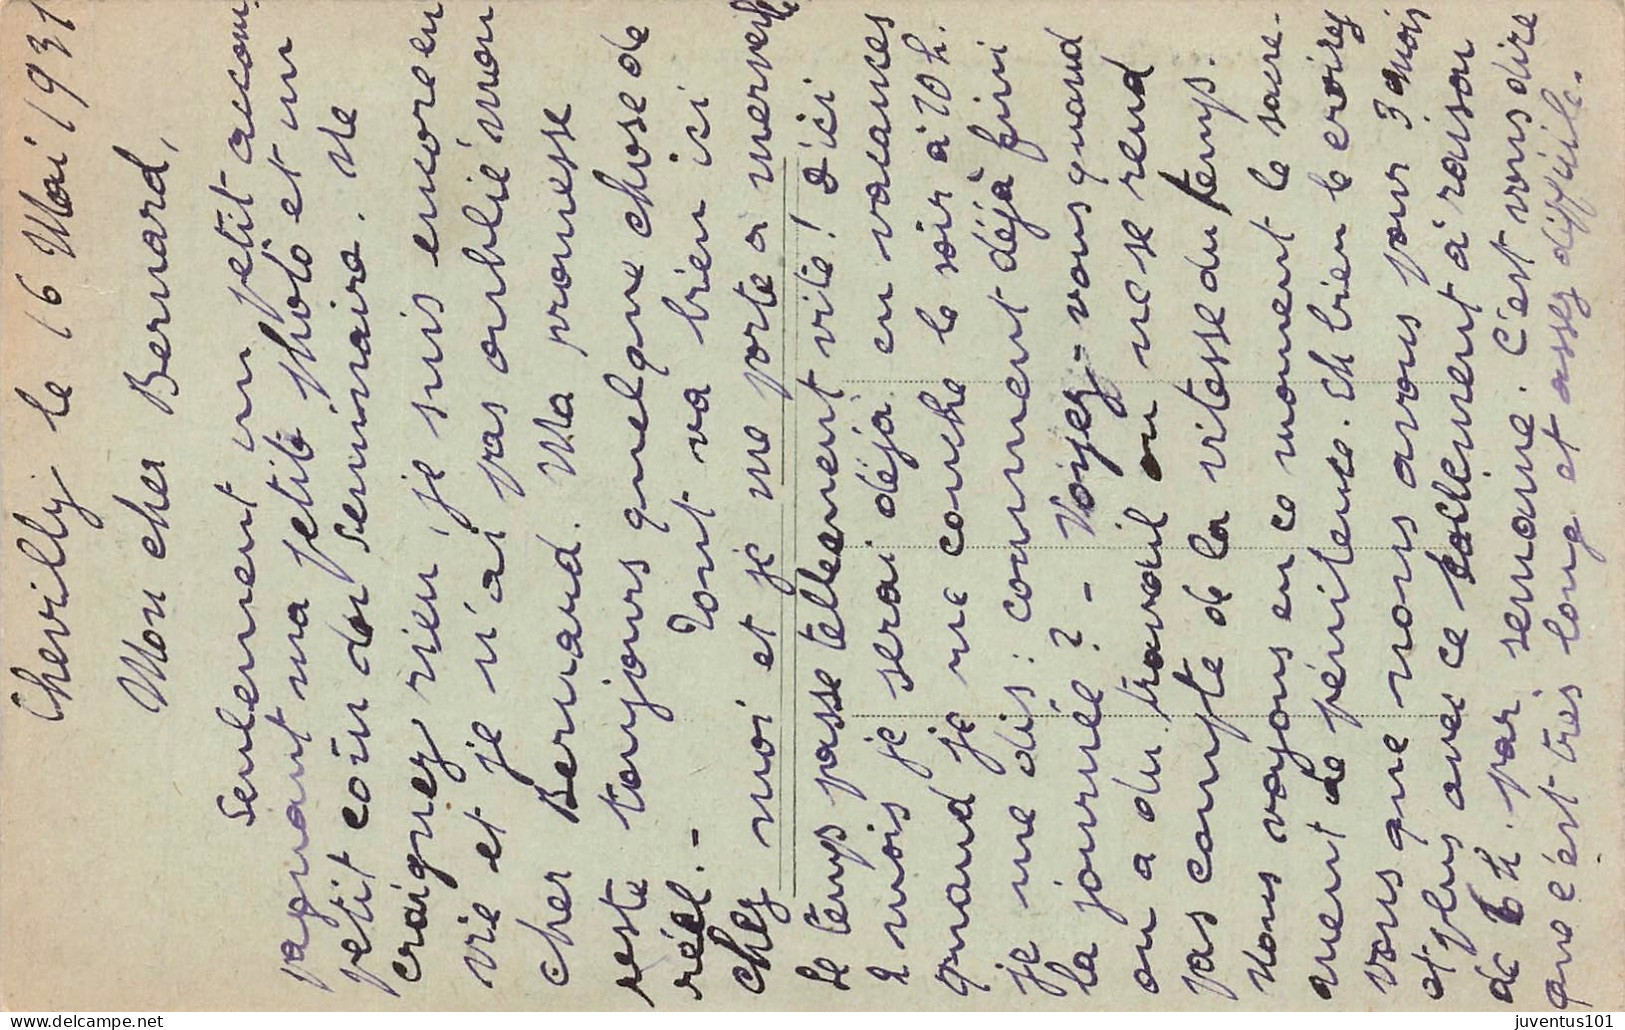 Chevilly le 16 Mai 1931
Mon cher Bernard,
Seulement un petit accom-
pagnant ma petite photo et un
petit coin du séminaire. Ne
craignez rien, je suis encore en
vie et je n'ai pas oublié mon
cher Bernard. Ma promesse
reste toujours quelque chose de
réel. -
Tout va bien ici
chez moi et je me porte à merveille
Le temps passe tellement vite ! D'ici
2 mois je serai déjà en vacances
quand je me couche le soir à 10 h.
je me dis : comment déjà fini
la journée ? - Voyez-vous quand
on a du travail on ne se rend
pas compte de la vitesse du temps.
Nous voyons en ce moment le sacre-
ment de pénitence. Eh bien le croirez
vous que nous avons pour 3 mois
et plus avec ce sacrement à raison
de 6 h. par semaine. C'est vous dire
que c'est très long et assez difficile.
juventus101